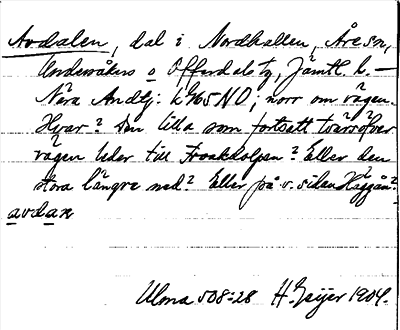 Avdalen, dal i Nordhallen, Åre sn,
Undersåkers o Offerdals tg, Jämtl. l. —
Nära Andtj: 49G5NO; norr om vägen.
Hvar? Den lilla som fortsatt tvärsöfver
vägen leder till Froakdolpen? Eller den
stora längre ned? Eller på v. sidan Häggån?
avdan
Ulma 508:28 H. Geijer 1904.